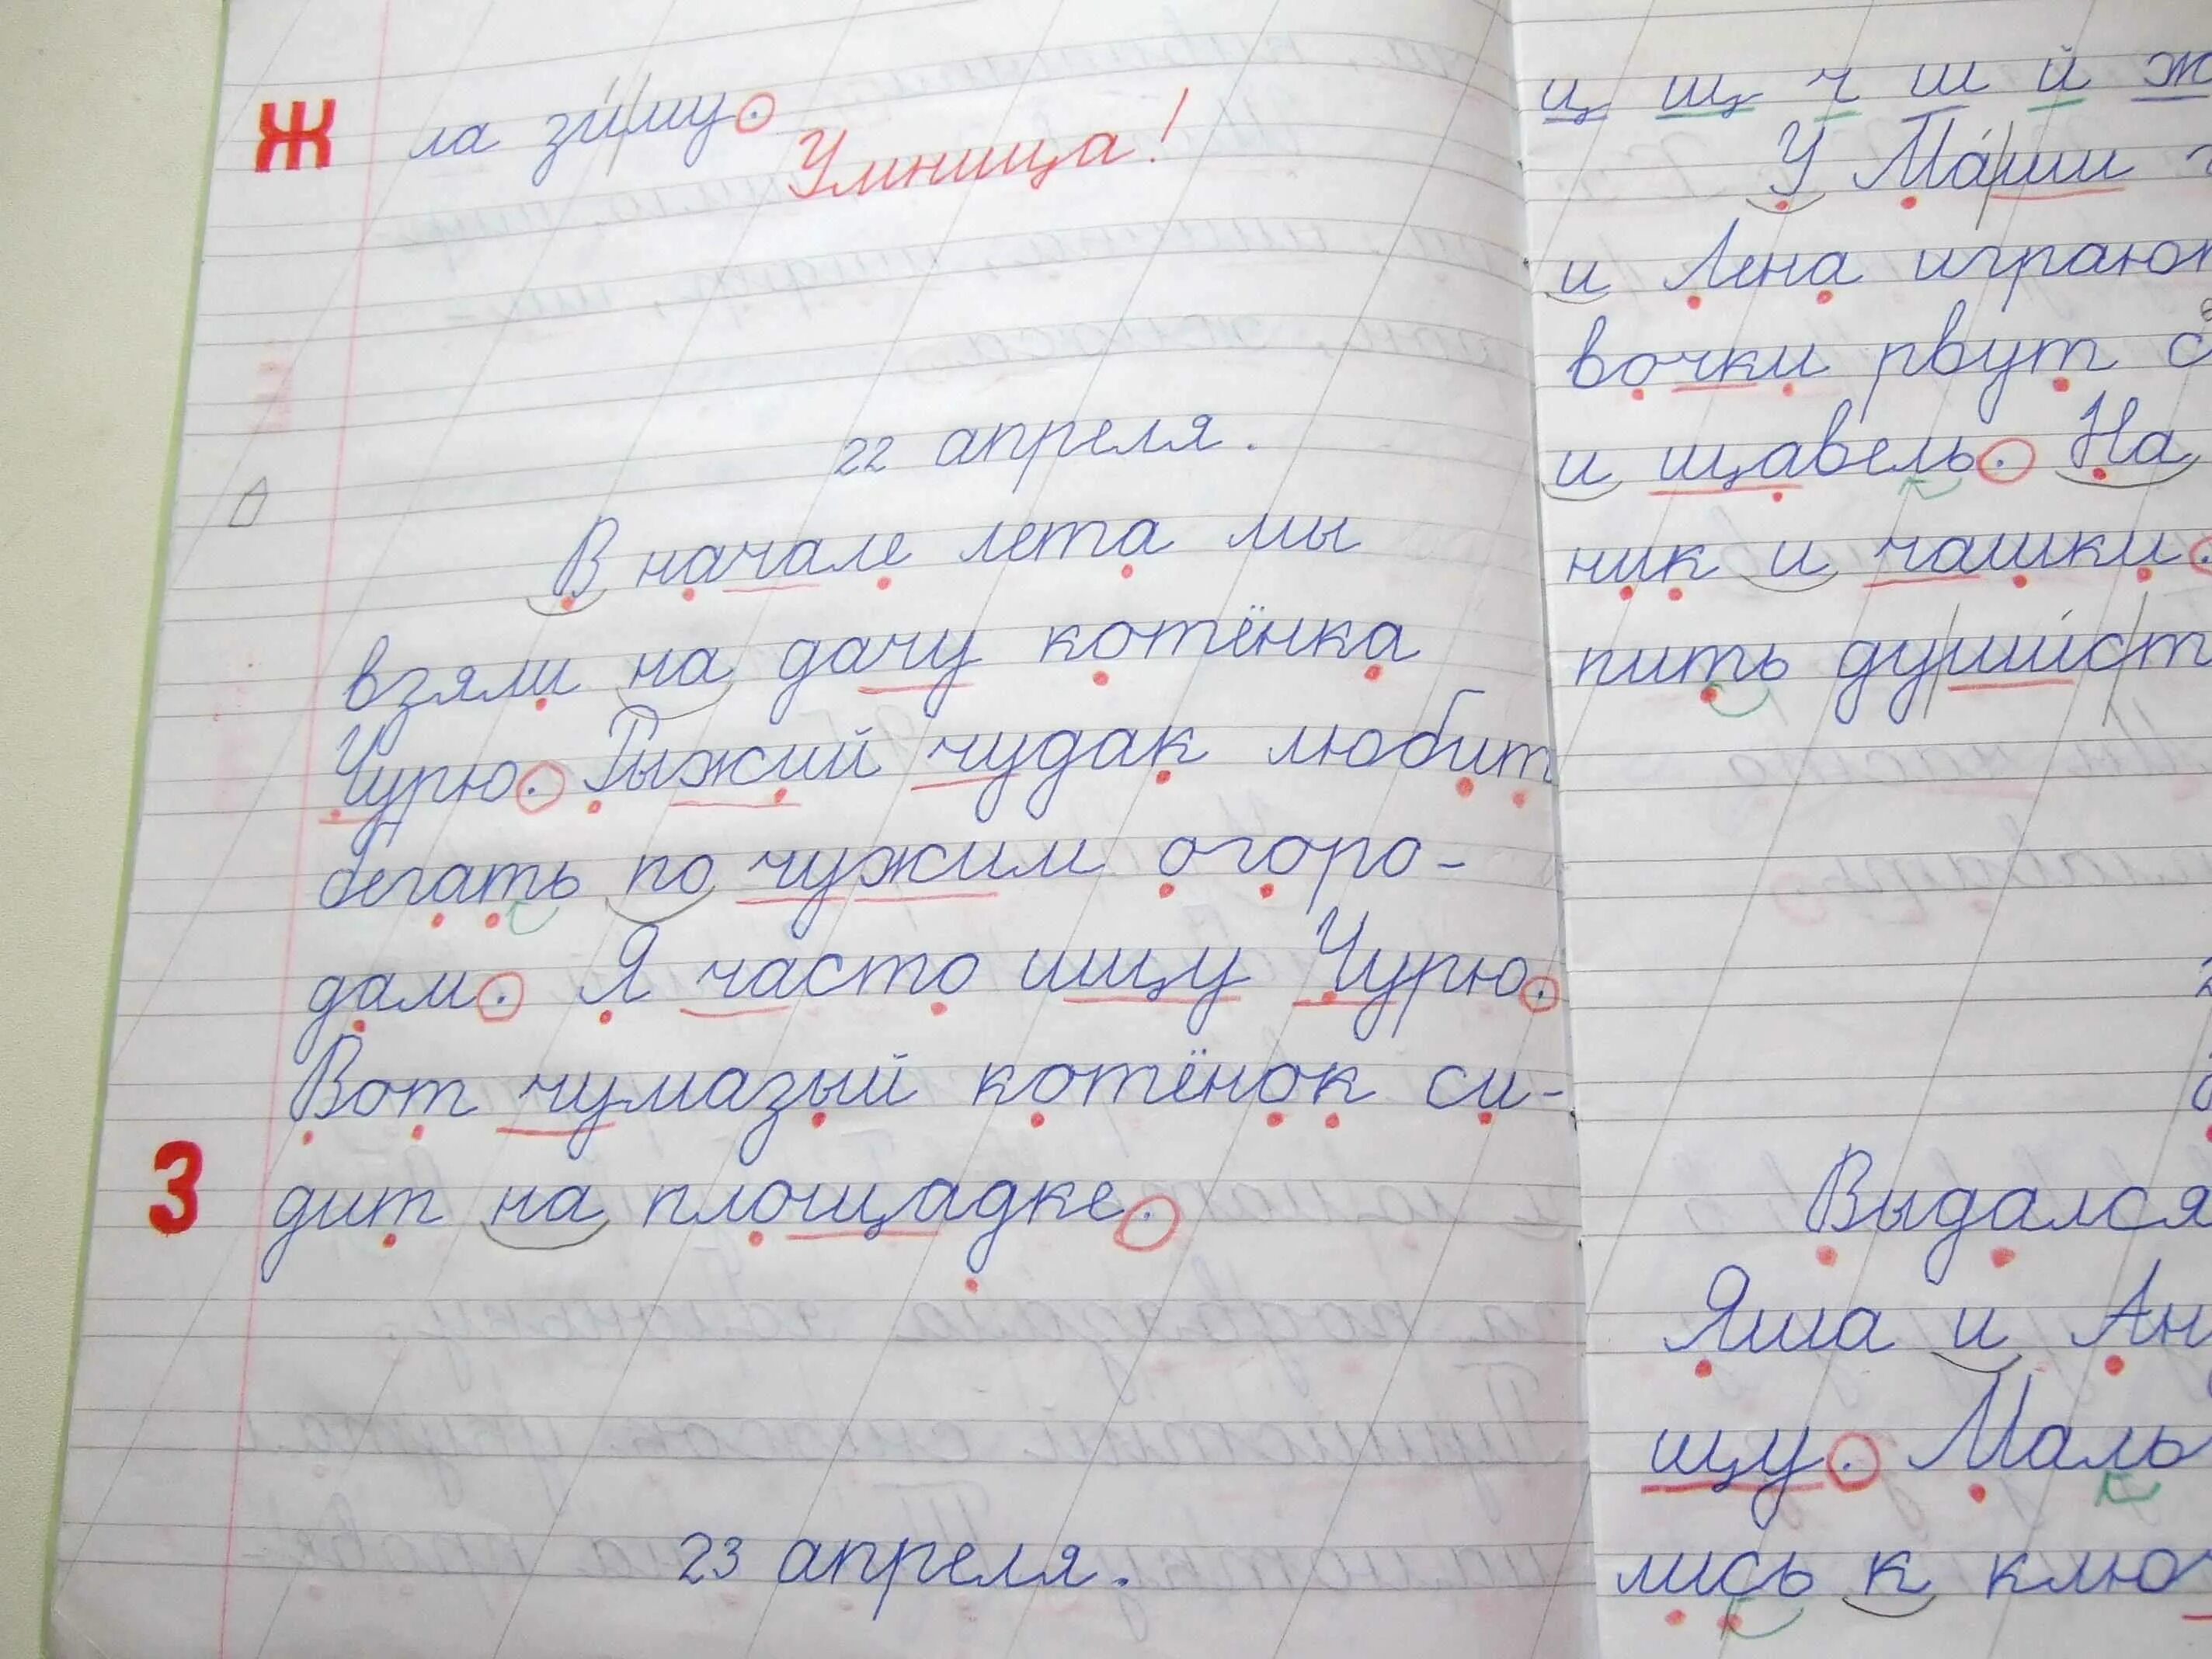 Ж ла зиму. Умница!
22 апреля.
В начале лета мы
взяли на дачу котёнка
Чурю. Рыжий чудак любит
бегать по чужим огоро-
дам. Я часто ищу Чурю.
Вот чумазый котёнок си-
З дит на площадке.
23 апреля.
ц щ ч ш й ж
У Маши
и Лена играют
вочки рвут
и щавель. На
ник и чашки.
пить душист
Выдался
Яша и Ан
щу. Маль
лись к клю